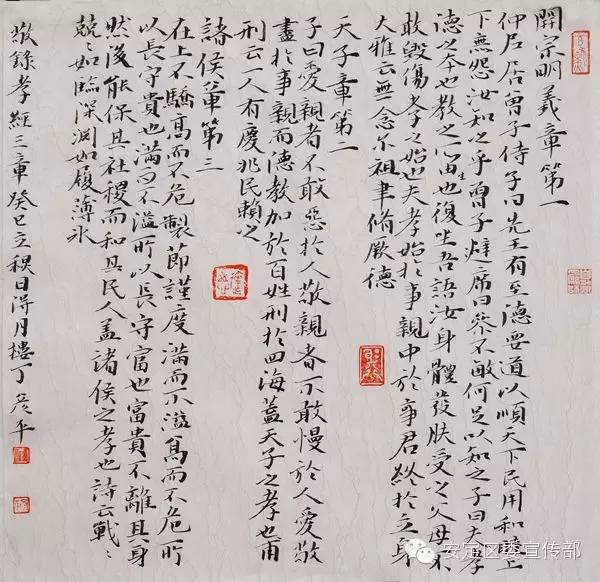 開宗明義章第一
仲尼居曾子侍子曰先王有至德要道以順天下民用和睦上
下無怨汝知之乎曾子避席曰參不敏何足以知之子曰夫孝
德之本也教之所由生也復坐吾語汝身體髮膚受之父母不
敢毀傷孝之始也夫孝始於事親中於事君終於立身
大雅云無念尔祖聿脩厥德
天子章第二
子曰愛親者不敢惡於人敬親者不敢慢於人愛敬
盡於事親而德教加於百姓刑於四海蓋天子之孝也甫
刑云一人有慶兆民賴之
諸侯章第三
在上不驕高而不危製節謹度滿而不溢高而不危所
以長守貴也滿而不溢所以長守富也富貴不離其身
然後能保其社稷而和其民人蓋諸侯之孝也詩云戰〻
兢〻如臨深淵如履薄冰
敬錄孝經三章癸巳立秋日得月樓丁彥平
安定区委宣传部